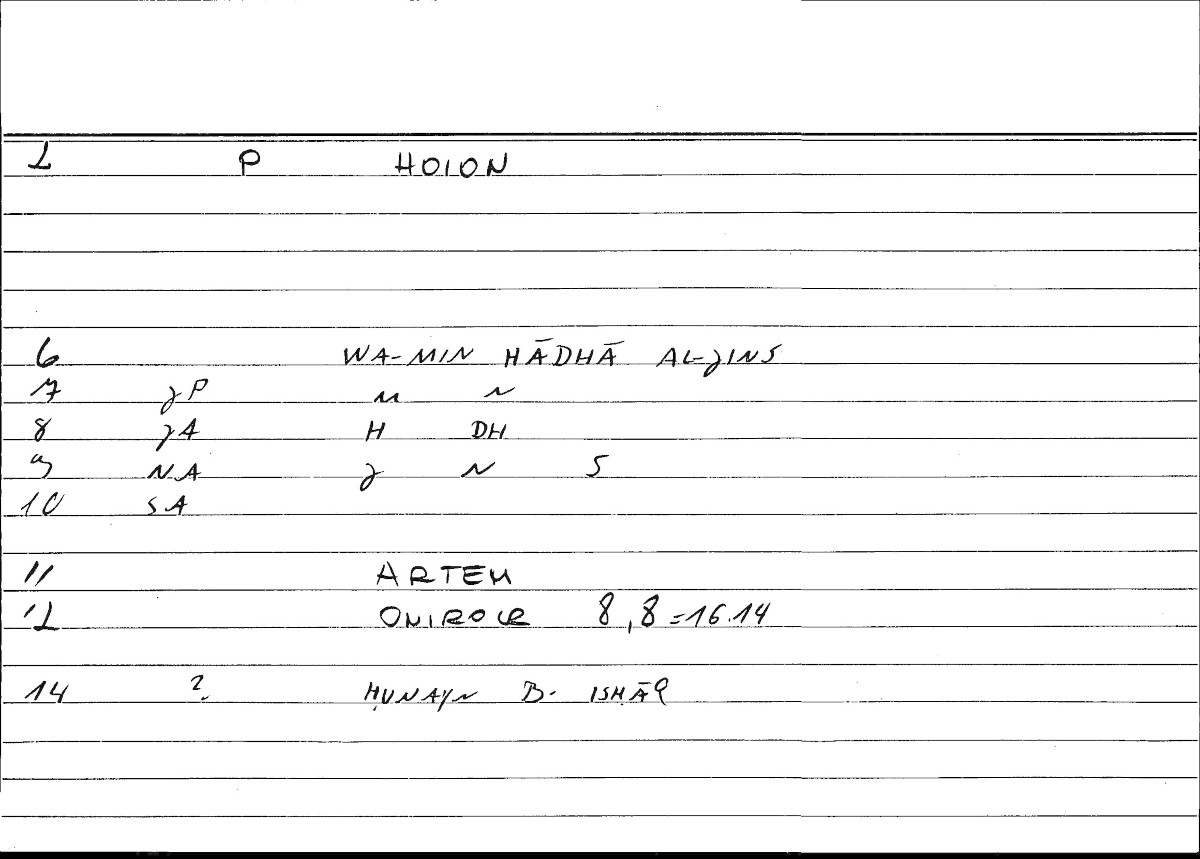 2 P HOION
6 WA-MIN HĀDHĀ AL-JINS
7 JP M N
8 JA H DH
9 NA J N S
10 SA
11 ARTEM
12 ONIROCR 8,8=16.14
14 ? ḤUNAYN B. ISḤĀQ